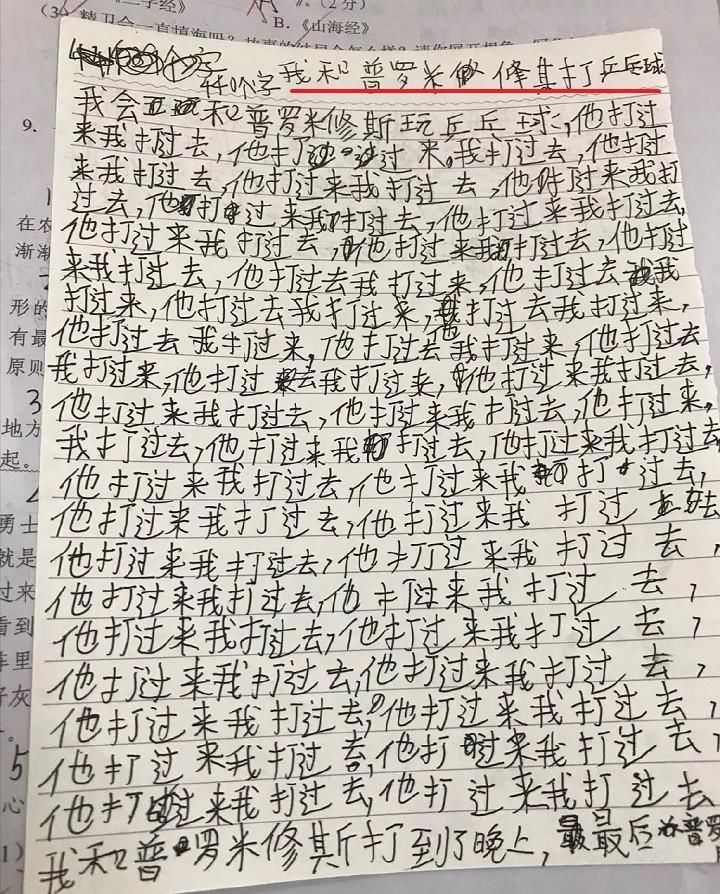 《二字经》
(2分)
B.《山海经》
440个字
我和普罗米修其打乒乓球
我会和普罗米修斯玩乒乓球,他打过
来我打过去,他打过来,我打过去,他打过
来我打过去,他打过来我打过去,他打过来我打
过去,他打过来我打过去,他打过来我打过去,
他打过来我打过去,他打过来我打过去,他打过
来我打过去,他打过去我打过来,他打过去我
打过来,他打过去我打过来,我打过去我打过来,
他打过去我打过来,他打过去我打过来,他打过去
我打过来,他打过去我打过来,他打过来我打过去,
他打过来我打过去,他打过来我打过去,他打过来,
我打过去,他打过来我打过去,他打过来我打过去
他打过来我打过去,他打过来我打过去,
他打过来我打过去,他打过来我打过去
他打过来我打过去,他打过来我打过去,
他打过来我打过去,他打过来我打过去,
他打过来我打过去,他打过来我打过去,
他打过来我打过去,他打过来我打过去,
他打过来我打过去,他打过来我打过去,
他打过来我打过去,他打过来我打过去,
他打过来我打过去,他打过来我打过去
我和普罗米修斯打到了晚上,最后普罗
9.
在农
渐渐
形的
有最
原则
3
地方
起。
勇士
就是
过来
看到
阵里
好灰
5
心
1)